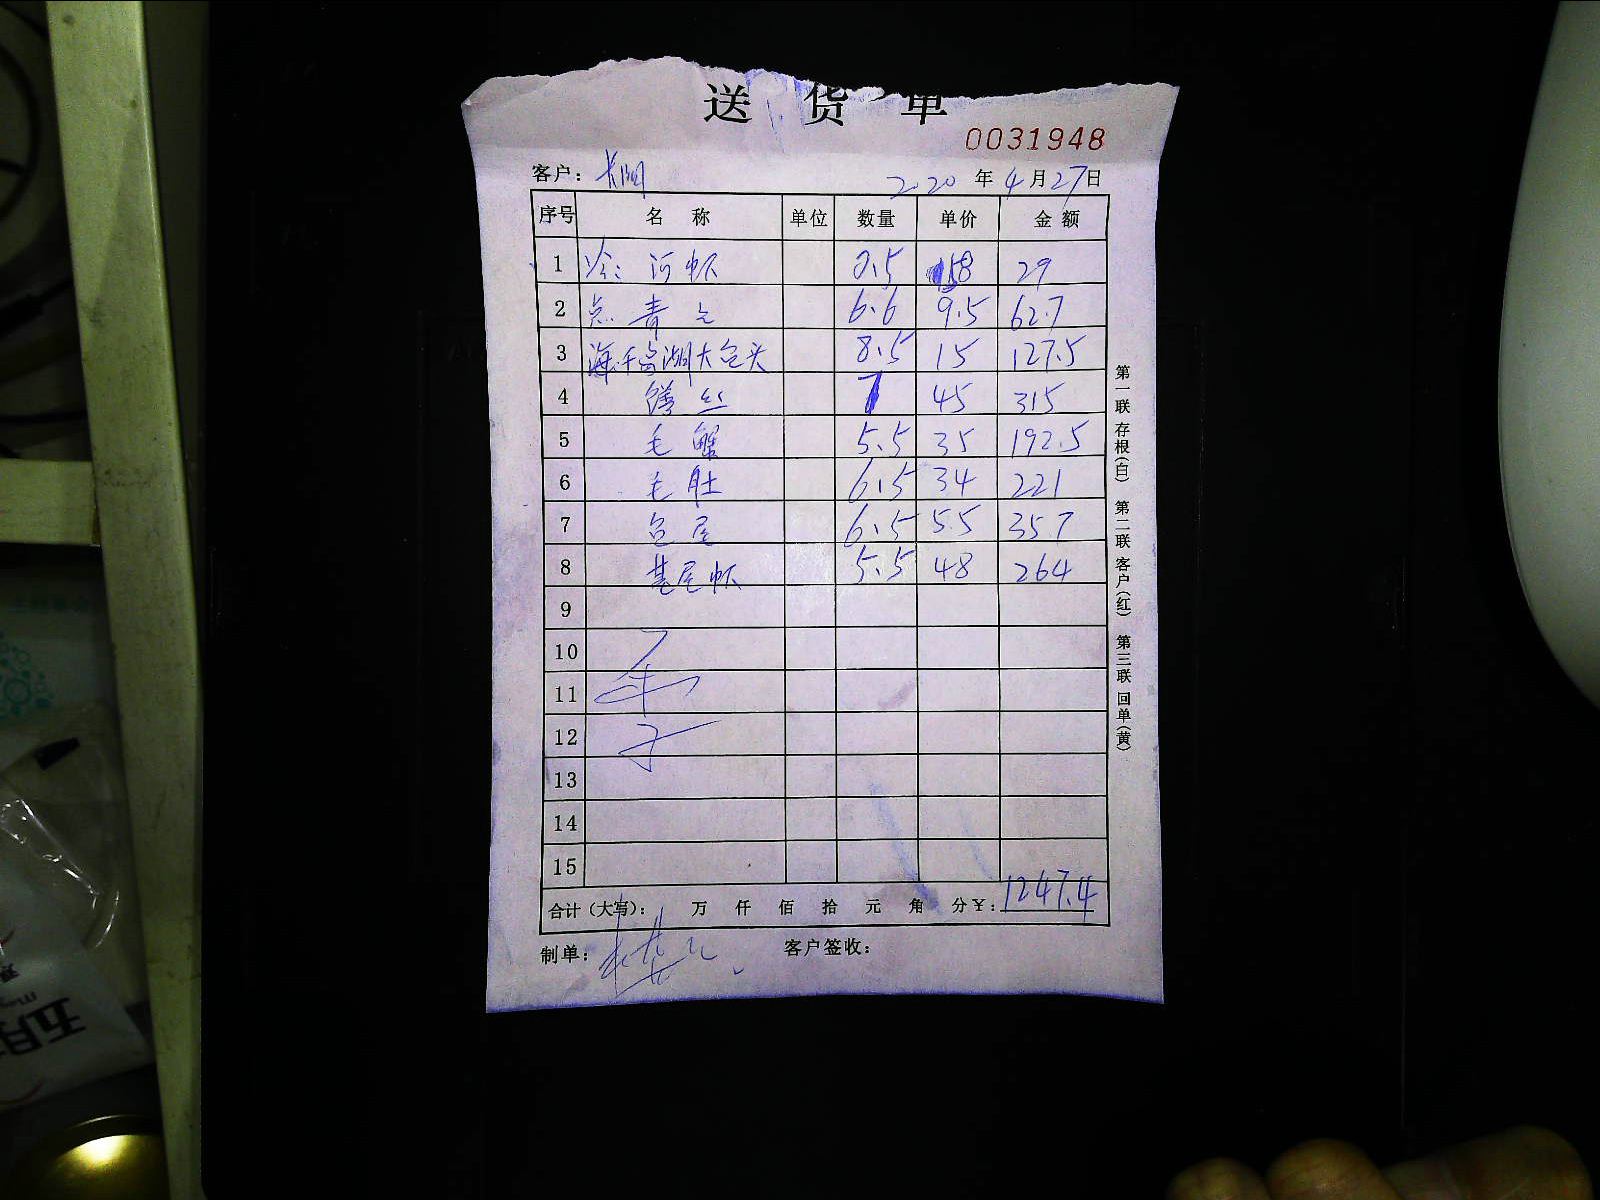 送货单
0031948
客户：
2020年4月27日
序号 名称 单位 数量 单价 金额
1 冷：河虾 0.5 58 29
2 点 青 6.6 9.5 62.7
3 海：千岛湖大包头 8.5 15 127.5
4 丝 7 45 315
5 毛蟹 5.5 35 192.5
6 毛肚 6.5 34 221
7 包尾 6.5 5.5 35.7
8 基尾虾 5.5 48 264
9
10
11
12
13
14
15
合计（大写）： 万 仟 佰 拾 元 角 分￥：1247.4
制单： 客户签收：
第一联 存根（白） 第二联 客户（红） 第三联 回单（黄）
五月